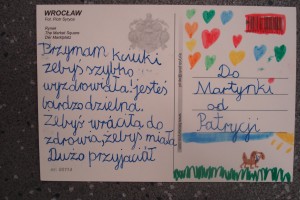 WROCŁAW
Fot. Piotr Serafin
Rynek
The Market Square
Der Marktplatz
Przynam kciuki
żebyś szybko
wyzdrowiała! jesteś
bardzo dzielna.
Żebyś wróciła do
zdrowia, żebyś miała
Dużo przyjaciół
Do
Martynki
od
Patrycji